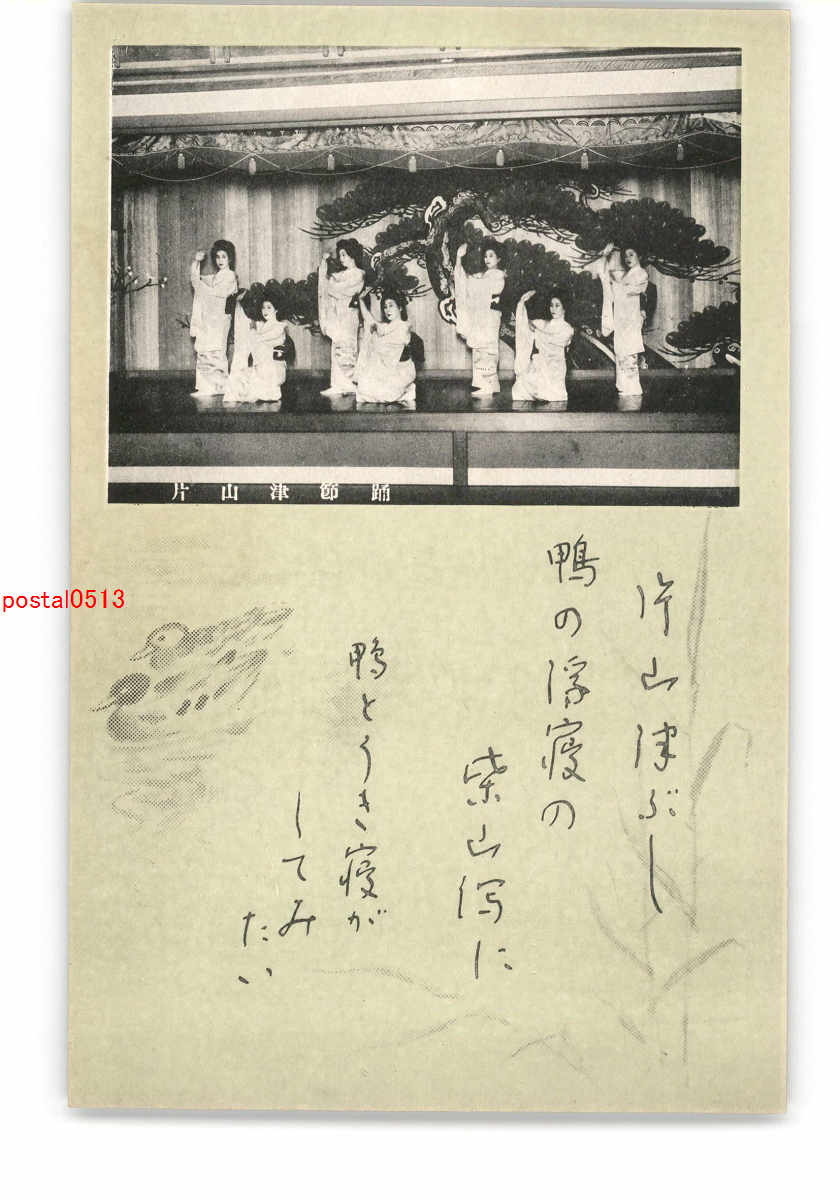 片山津節踊
片山津ぶし
鴨の浮寝の
柴山潟に
鴨とうき寝が
してみ
たい
postal0513